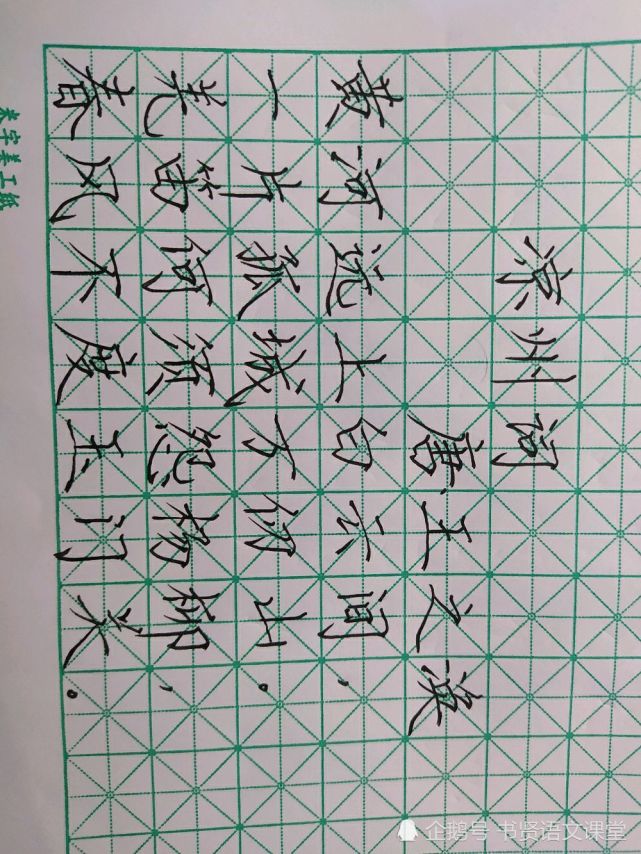 凉州词
唐王之涣
黄河远上白云间，
一片孤城万仞山。
羌笛何须怨杨柳，
春风不度玉门关。
米字美工纸
企鹅号 书贤语文课堂